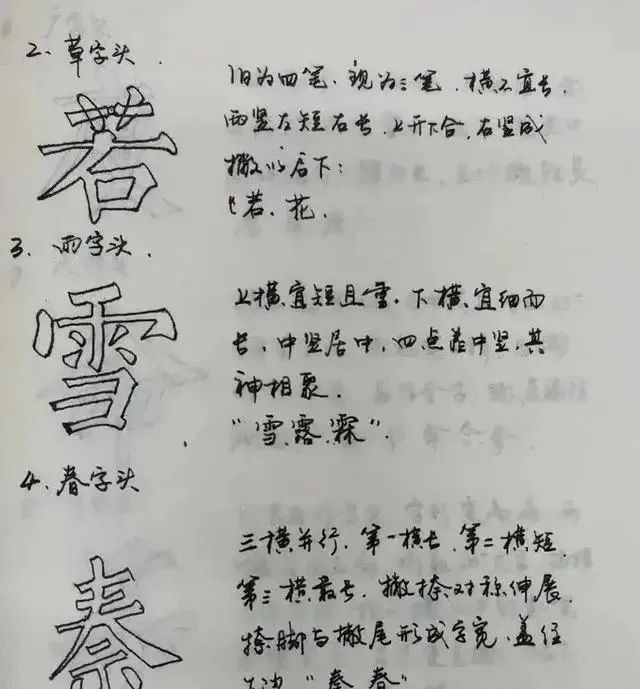 2、草字头.
若
旧为四笔.现为三笔.横不宜长.
两竖左短右长.上开下合,右竖成
撇
若、花.
3、雨字头.
雪
上横宜短且重.下横宜细而
长.中竖居中,四点靠中竖.其
神相聚.
"雪.露.霖".
4、春字头
秦
三横并行.第一横长.第二横短.
第三横最长.撇捺对称伸展.
捺脚与撇尾形成字宽.盖住
"秦.春"